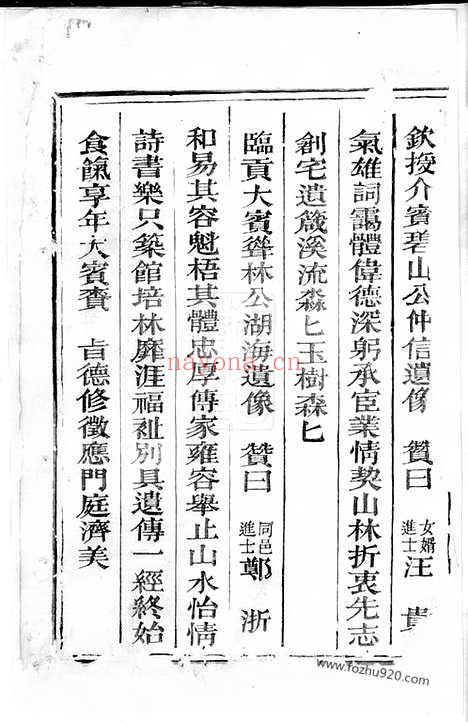 欽授介賓碧山公仲信遺像 贊曰 女婿進士汪貴
氣雄詞靄體偉德深躬承宦業情契山林折衷先志
創宅遺箴溪流淼匕玉樹森匕
臨貢大賓聳林公湖海遺像 贊曰 同邑進士鄭浙
和易其容魁梧其體忠厚傳家雍容舉止山水怡情
詩書樂只築館培林靡涯福祉別具遺傳一經終始
食餼享年大賓賚 旨德修徵應門庭濟美
nayona.cn
www.fozhu979.com